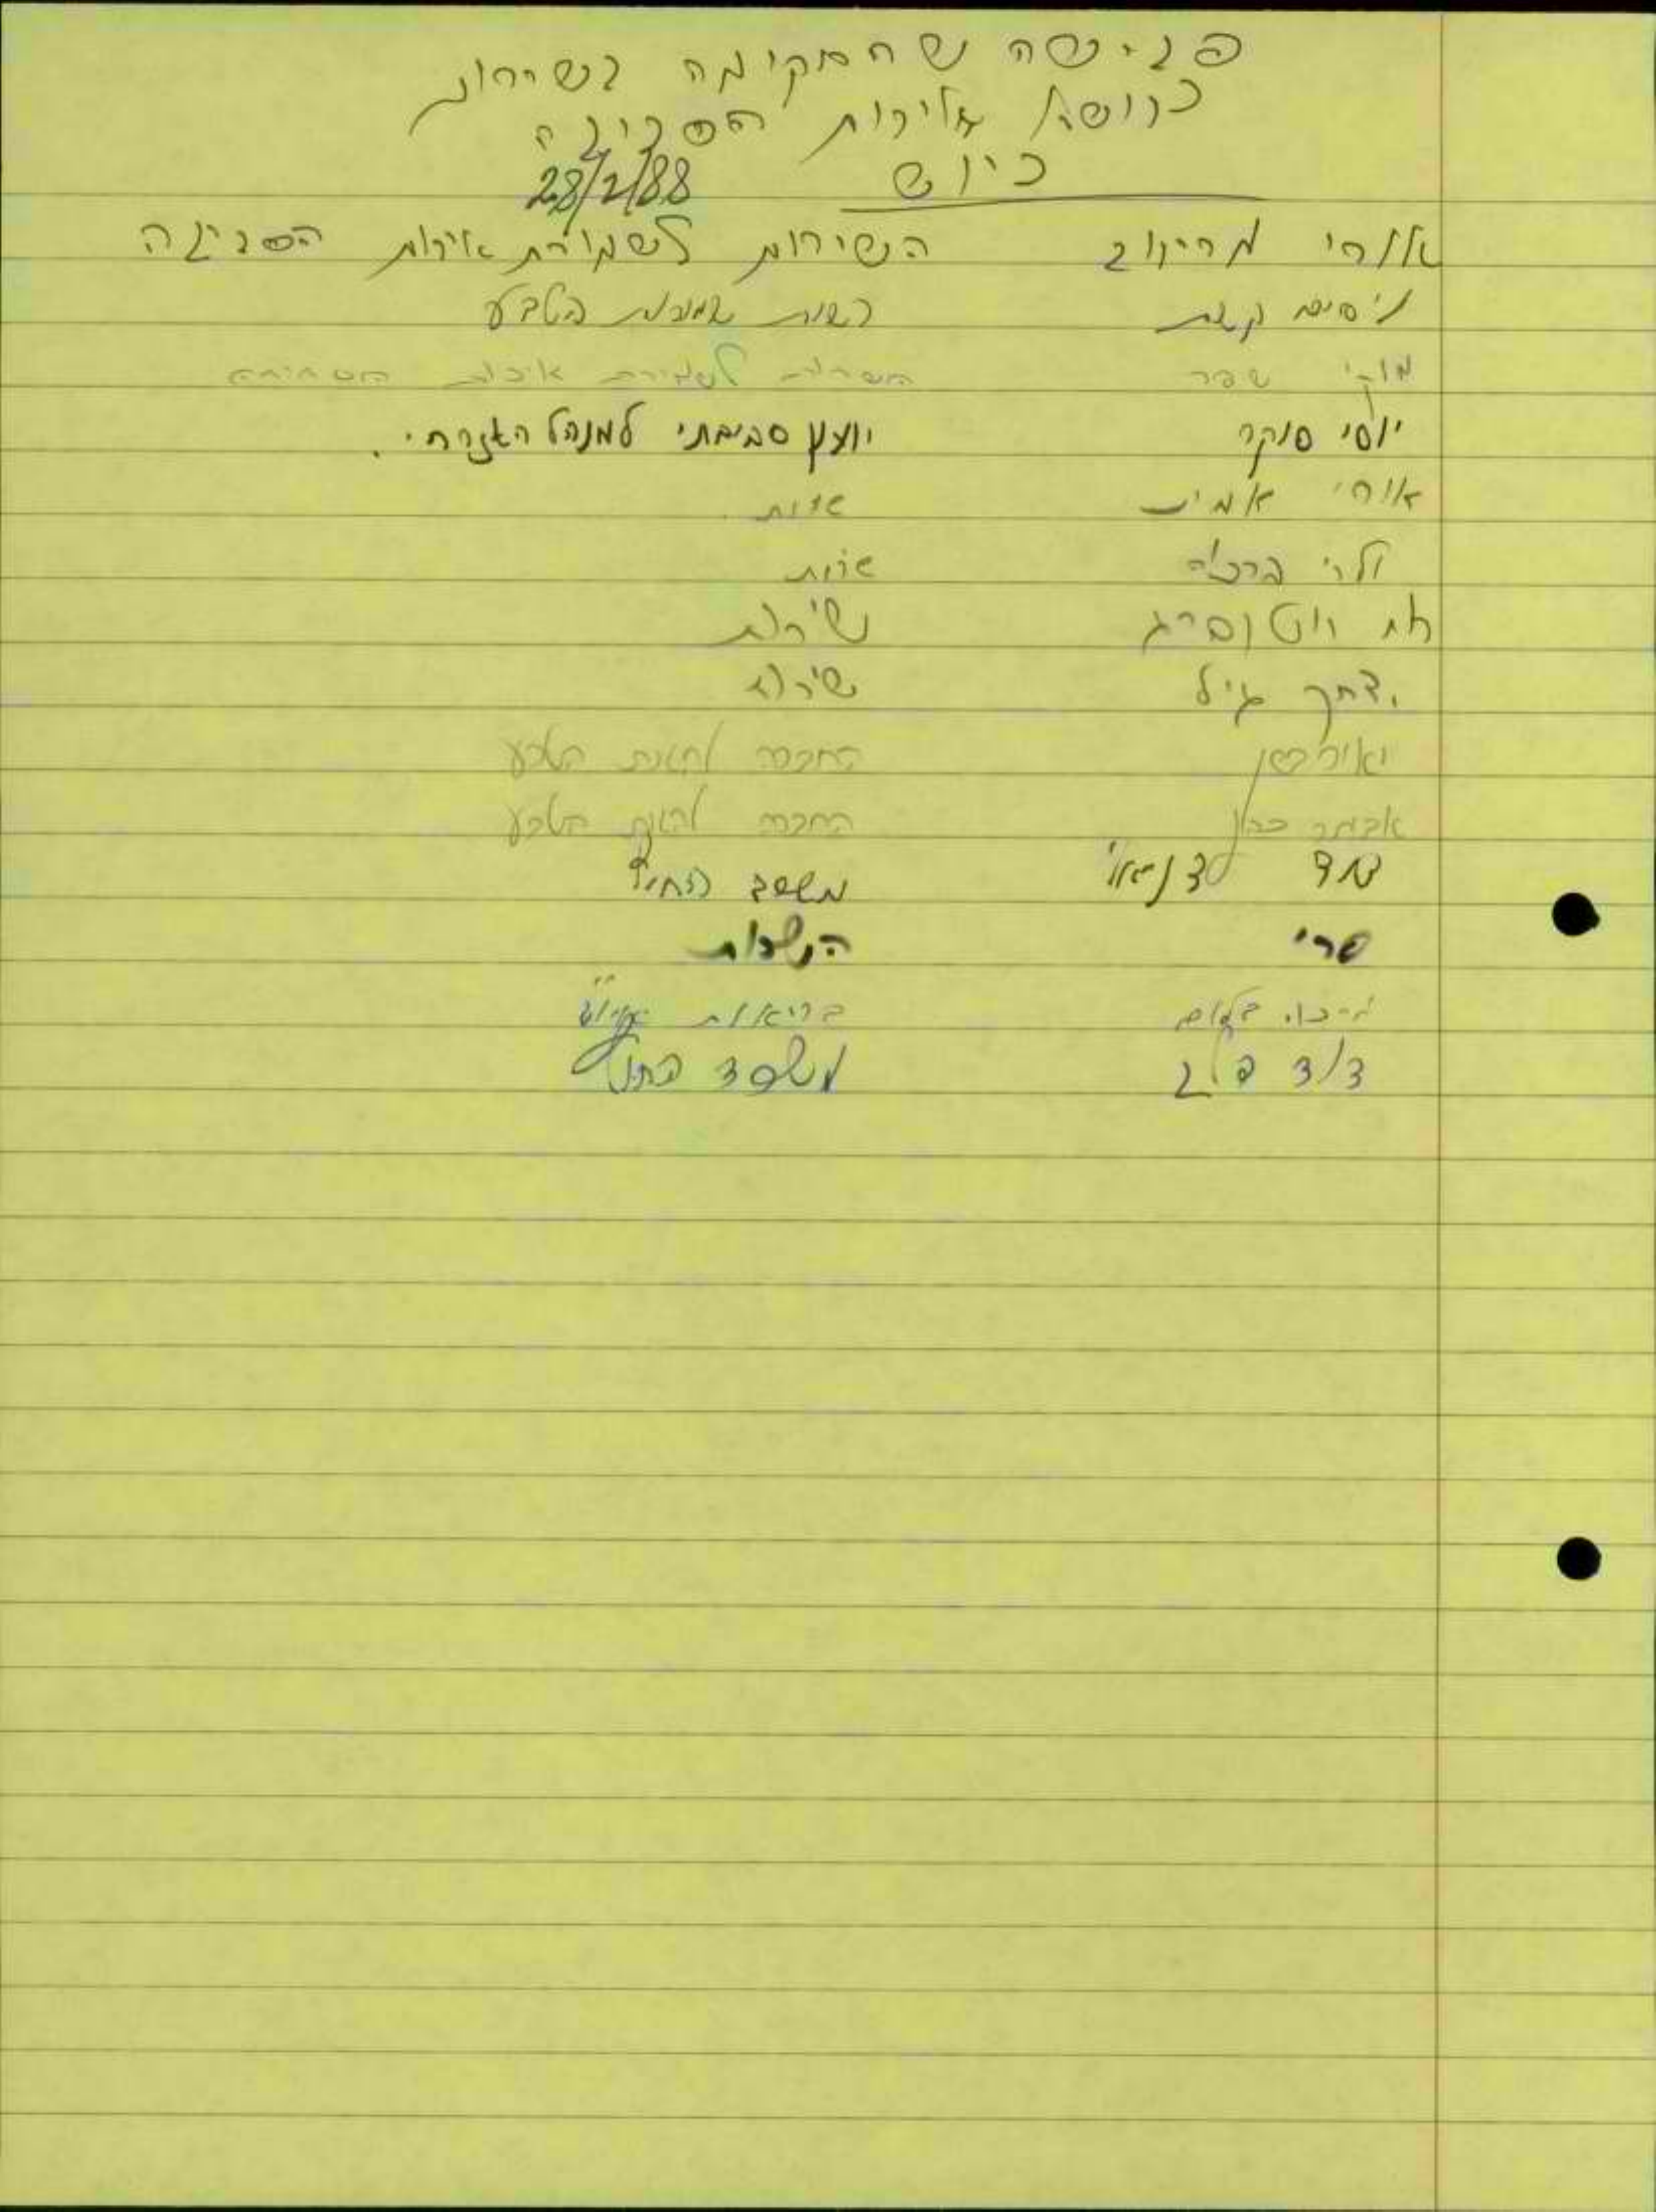 פגישה שהתקיימה בשירות
בנושא איכות הסביבה
ביוש 28/2/88
אורי מרינוב השירות לשמירת איכות הסביבה
ניסים קשת רשות שמורות הטבע
מוקי שפר השרות לשמירת איכות הסביבה
יוסי סוקר יועץ סביבתי למנהל האזרחי.
אורי שרות
שרות
רות רוטנברג שירות
יצחק גיל שירות
יאיר החברה להגנת הטבע
אביתר כהן החברה להגנת הטבע
משרד החוץ
שרי השרות
בריאות איו"ש
דוד משרד החוץ